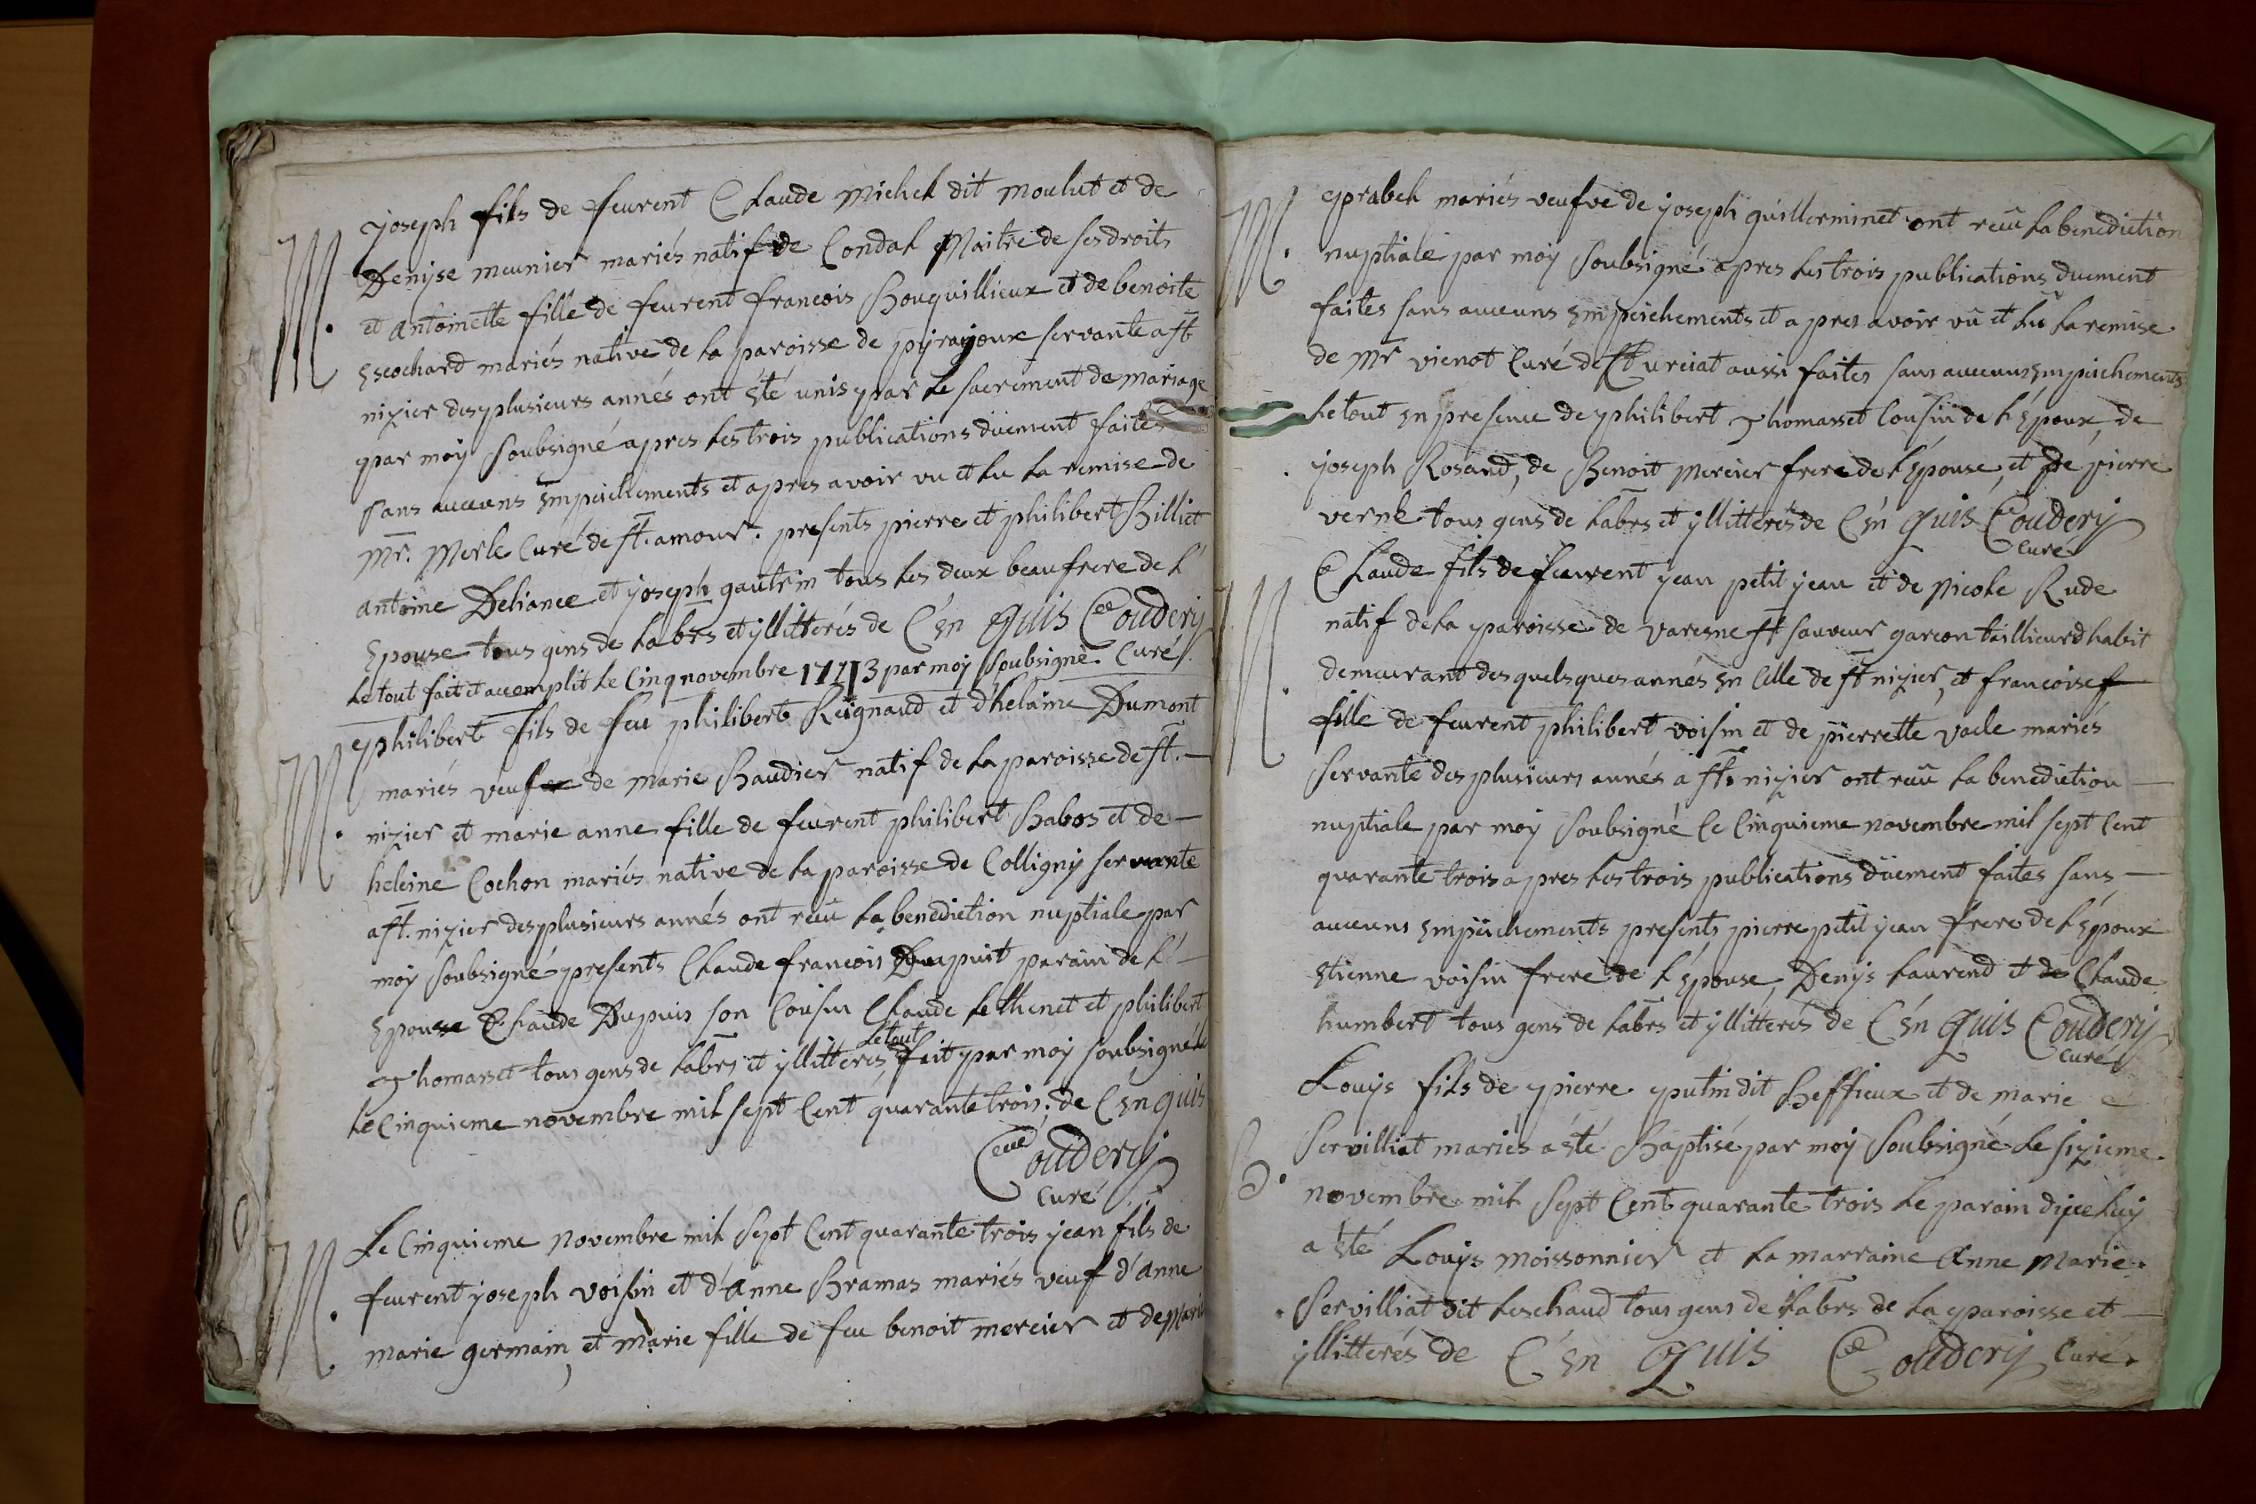 M.
joseph fils de feurent Claude Michel dit Moulut et de
Denyse meunier mariés natif de Condal Maitre de ses droits
et antoinette fille de feurent francois Bouquillieux et de benoite
Escochard mariés native de la paroisse de pijrajoux servante a st
nizier des plusieurs annés ont été unis par le sacrement de mariage
par moy soubsigné apres les trois publications düement faites
sans aucuns Empeichements et apres avoir vu et lu la remise de
Mr. Merle Curé de st. amour. presents pierre et philibert Billiet
antoine Deliance et joseph gautrin tous les deux beaufrere de l'
Epouse tous gens de labrs et yllitterés de C'en Quis Couderij
le tout fait et accomplit le Cinq novembre 1743 par moy soubsigné. Curé
M.
philibert fils de feu philibert Reignaud et d'helaine Dumont
mariés veuf de marie Baudier natif de la paroisse de st.
nizier et marie anne fille de feurent philibert Babos et de
heleine Cochon mariés native de la paroisse de Colligny servante
a st. nizier des plusieurs annés ont recu la benediction nuptiale par
moy soubsigné presents Claude francois Dupuit parain de l'é
Epouse Claude Dupuis son Cousin Claude lethenet et philibert
Thomasset tous gens de labrs et yllitterés, le tout fait par moy soubsigné
le Cinquieme novembre mil sept Cent quarante trois; de C'en quis
Couderij
Curé
M.
Le Cinquieme Novembre mil sept Cent quarante trois jean fils de
feurent joseph voisin et d'anne Bramas mariés veuf d'anne
marie germain, et marie fille de feu benoit mercier et de marie
M.
prabel mariés veufve de joseph guillerminet ont recu la benediction
nuptiale par moy soubsigné apres les trois publications duement
faites sans aucuns Empeichements et apres avoir vû et lû la remise
de Mr vienot Curé de st urciat aussi faites sans aucuns Empeichements
le tout en presence de philibert Thomasset Cousin de l'Epoux, de
joseph Rosand, de Benoit Mercier frere de l'Epouse, et de pierre
verne tous gens de labrs et yllitterés de C'en Quis Couderij
Curé
M.
Claude fils de feurent jean petit jean et de Nicole Rude
natif de la paroisse de varesne st sauveur garcon taillieur d'habit
demeurant des quelsques annés en Celle de st nizier, et francoise f
fille de feurent philibert voisin et de pierrette vacle mariés
servante des plusieurs annés a st. nizier ont recu la benediction
nuptiale par moy soubsigné Ce Cinquieme novembre mil sept Cent
quarante trois apres les trois publications düement faites sans
aucuns Empeichements presents pierre petit jean frere de l'Epoux
Etienne voisin frere de l'Epouse, Denys laurend et de Claude
humbert tous gens de labrs et yllitterés de C'en Quis Couderij
Curé
B.
Louijs fils de pierre putin dit Beffieux et de marie
Servilliat mariés a été Baptisé par moy soubsigné le sizieme
novembre mil sept Cent quarante trois le parain d'jceluy
a été Louijs Moissonnier et la marraine Anne Marie
Servilliat dit leschaud tous gens de labrs de la paroisse et
yllitterés de C'en Quis Couderij Curé.